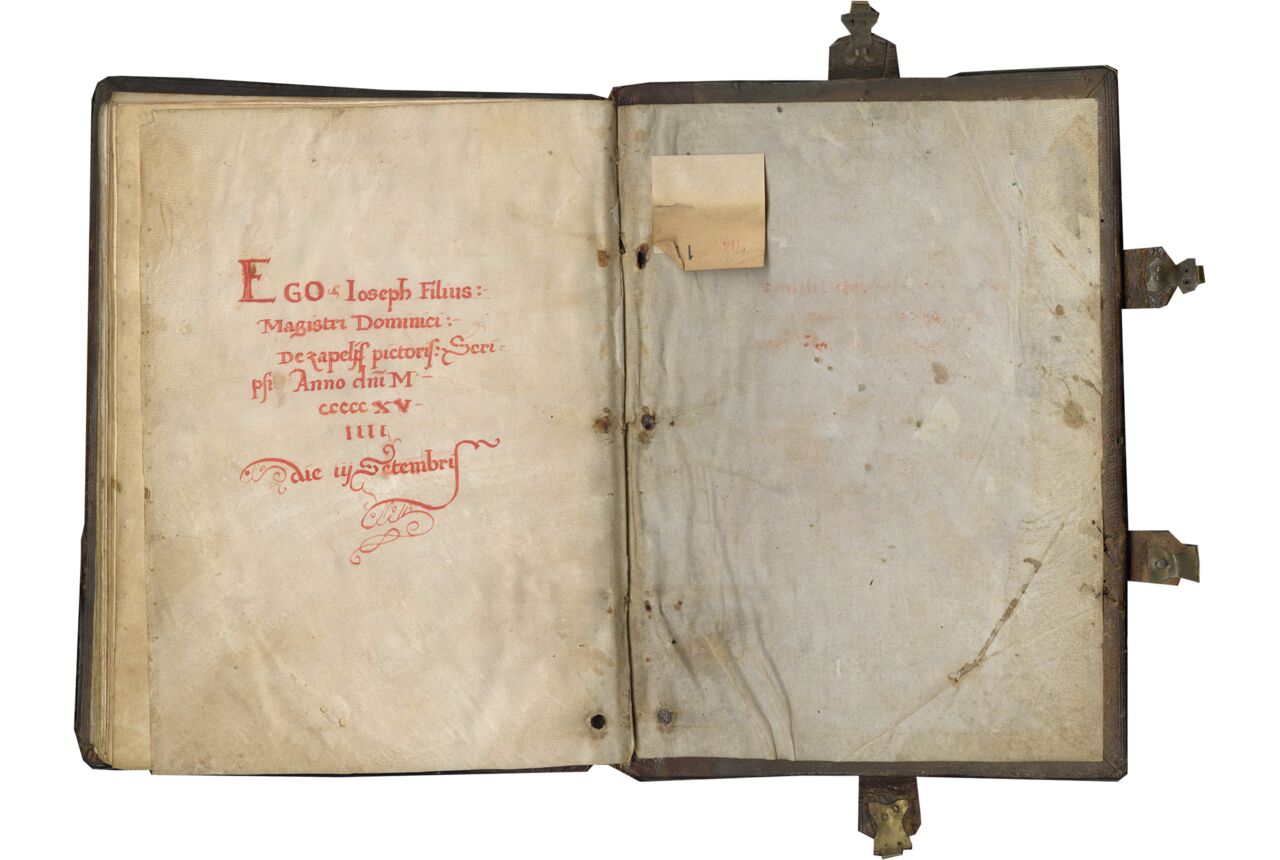 EGO Ioseph Filius:
Magistri Dominici:
De zapelis pictoris: Scri-
psi Anno dnī M
ccccc XV
IIII
die iij Setembris